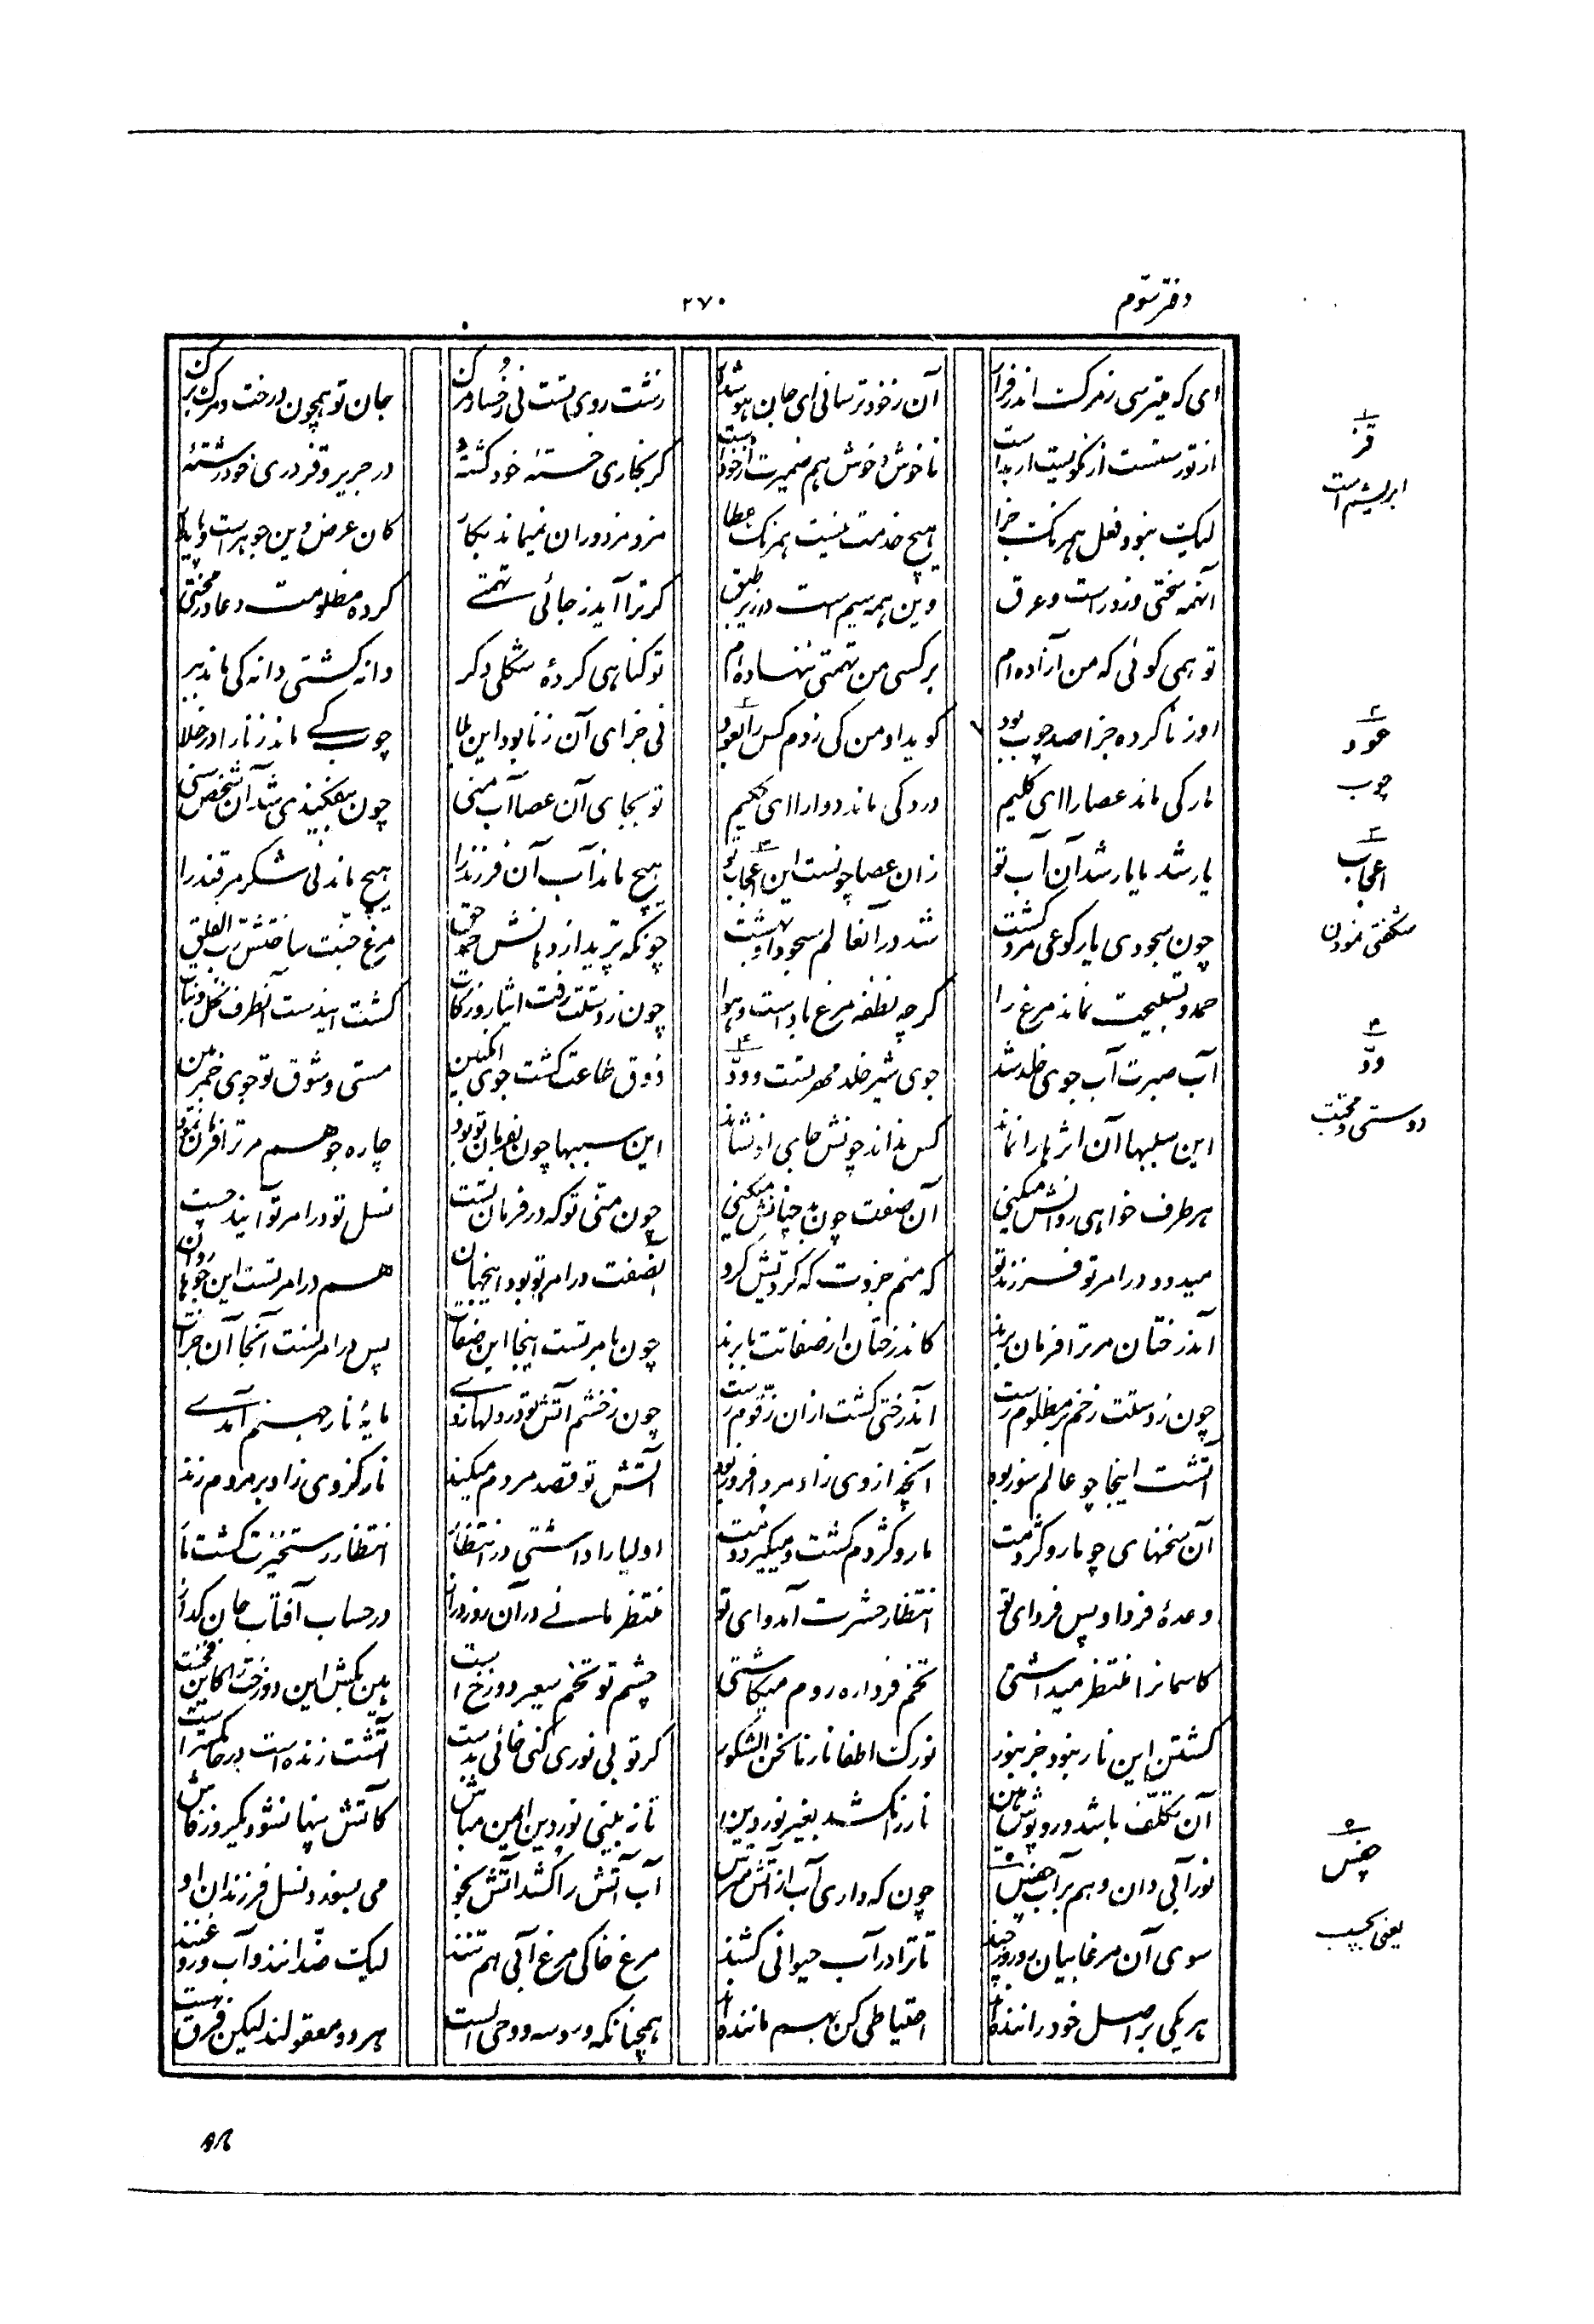 دفتر سوم
۲۷۰
ای که میترسی ز مرگ اندر فرار آن ز خود ترسانی ای جان هوش دار زشت روی تست نی رخسار مرگ جان تو همچون درخت و مرگ برگ
از تو رستست ار نکویست ار بد است ناخوش و خوش هم ضمیرت از خود است گر بخاری خستهٔ خود کشتهٔ ور حریر و قز دری خود رشتهٔ
لیک نبود فعل همرنگ جزا هیچ خدمت نیست همرنگ عطا مزد مزدوران نمیماند بکار کان عرض وین جوهر است و پایدار
آنهمه سختی و زور است و عرق وین همه سیم است و زر بر طبق گر ترا آید ز جائی تهمتی کرده مظلومت دعا در محنتی
تو همی گوئی که من آزاده‌ام بر کسی من تهمتی ننهاده‌ام تو گناهی کردهٔ شکلی دگر دانه کشتی دانه کی ماند ببر
او زنا کرده جزا صد چوب بود گوید او من کی زدم کس را بعود نی جزای آن زنا بود این بلا چوب کی ماند زنا را در خلا
مار کی ماند عصا را ای کلیم درد کی ماند دوا را ای حکیم تو بجای آن عصا آب منی چون بیفکندی شد آن شخص سنی
یار شد یا مار شد آن آب تو زان عصا چونست این اعجاب تو هیچ ماند آب آن فرزند را هیچ ماند نی شکر مر قند را
چون سجودی یا رکوعی مرد کشت شد در آنعالم سجود او بهشت چونکه پرید از دهانش حمد حق مرغ جنت ساختش رب الفلق
حمد و تسبیحت نماند مرغ را گر چه نطفه مرغ باد است و هوا چون ز دستت رفت ایثار و زکات گشت ایندست آنطرف نخل و نبات
آب صبرت آب جوی خلد شد جوی شیر خلد مهر تست و ود ذوق طاعت گشت جوی انگبین مستی و شوق تو جوی خمر بین
این سببها آن اثرها را نماند کس نداند چونش جای او نشاند این سببها چون بفرمان تو بود چار جو هم مر ترا فرمان نمود
هر طرف خواهی روانش میکنی آن صفت چون بد چنانش میکنی چون منی تو که در فرمان تست نسل تو در امر تو آیند چست
میدود در امر تو فرزند تو که منم جزوت که کردیش گرو آنصفت در امر تو بود اینجهان هم در امر تست این جوها روان
آندرختان مر ترا فرمان برند کاندرختان از صفاتت با برند چون بامر تست اینجا این صفات پس در امر تست آنجا آن جزات
چون ز دستت زخم بر مظلوم رست آندرختی گشت ازان زقوم رست چون ز خشم آتش تو در دلها زدی مایهٔ نار جهنم آمدی
آتشت اینجا چو عالم سوز بود آنچه از وی زاد مرد افروز بود آتش تو قصد مردم میکند نار کز وی زاد بر مردم زند
آن سخنهای چو مار و کژدمت مار و کژدم گشت و میگیرد دمت اولیا را داشتی در انتظار انتظار رستخیزت گشت یار
وعدهٔ فردا و پس فردای تو انتظار حشرت آمد وای تو منتظر مانی در آن روز دراز در حساب آفتاب جان گداز
کاسمانرا منتظر میداشتی تخم فردا ره روم میکاشتی خشم تو تخم سعیر دوزخ است هین بکش این دوزخت را کاین فخست
کشتن این نار نبود جز بنور نورک اطفا نارنا نحن الشکور گر تو بی نوری کنی حلمی بدست آتشت زنده است و در خاکستر است
آن تکلف باشد و روپوش هین نار را نکشد بغیر نور دین تا نه بینی نور دین ایمن مباش کآتش پنهان شود یکروز فاش
نور آبی دان و هم بر آب چفس چون که داری آب از آتش مترس آب آتش را کشد کآتش بخو می بسوزد نسل فرزندان او
سوی آن مرغابیان رو روز چند تا ترا در آب حیوانی کشند مرغ خاکی مرغ آبی هم تنند لیک ضدانند و آب و روغنند
هر یکی مر اصل خود را بنده‌اند احتیاطی کن بهم ماننده‌اند همچنانکه وسوسه و وحی الست هر دو معقولند لیکن فرق هست
۱
قز
ابریشم است
۲
عود
چوب
۳
اعجاب
شگفتی نمودن
۴
ود
دوستی و محبت
۵
چفس
یعنی بچسب